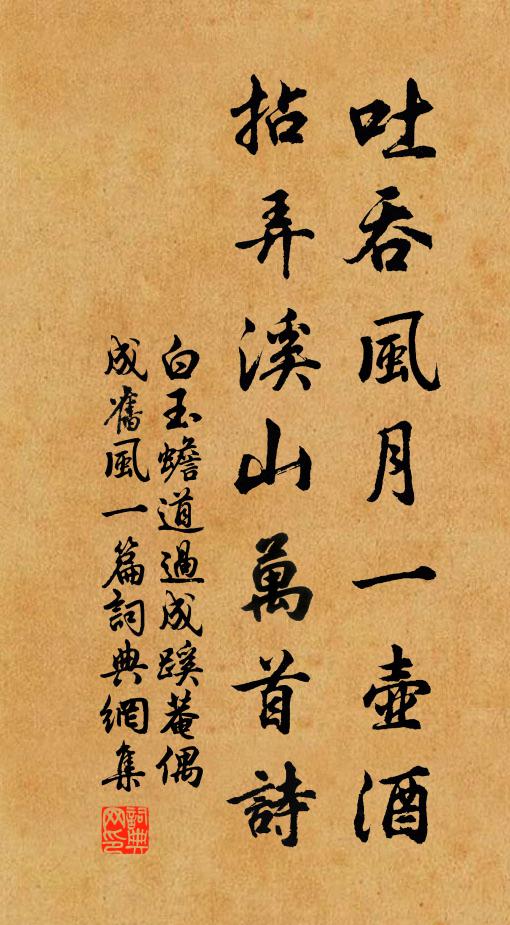 吐吞風月一壺酒
拈弄溪山萬首詩
白玉蟾道過成蹊菴偶
成舊風一篇詞典網集
詞典网印